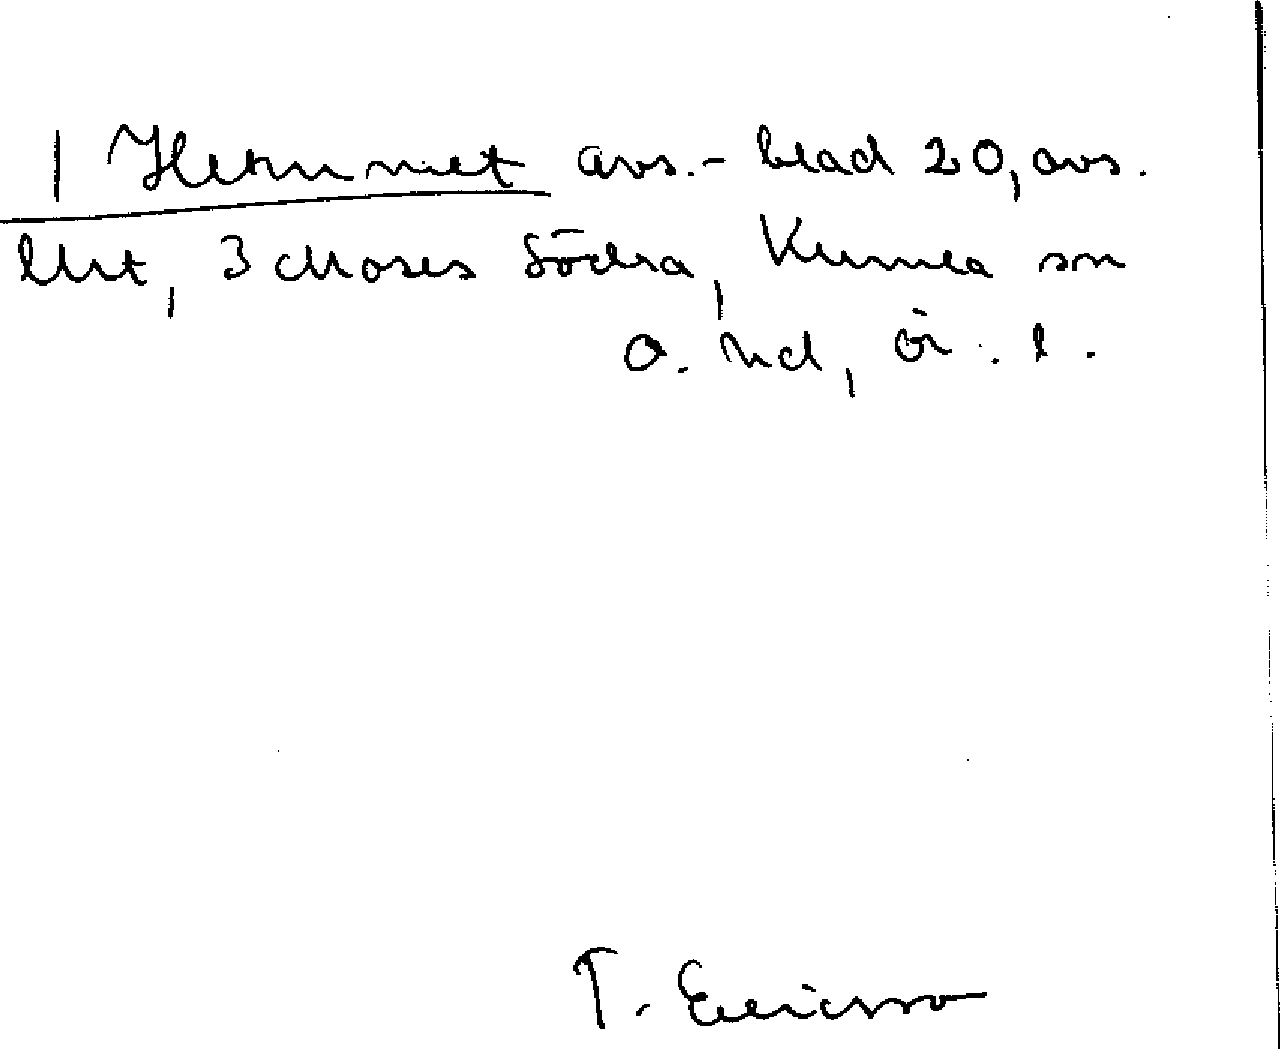 | Hemmet avs.- blad 20, avs.
lht, 3 Mosjes Södra, Kumla sn
Ö. Nd, Ör. l.
T. Ericsso